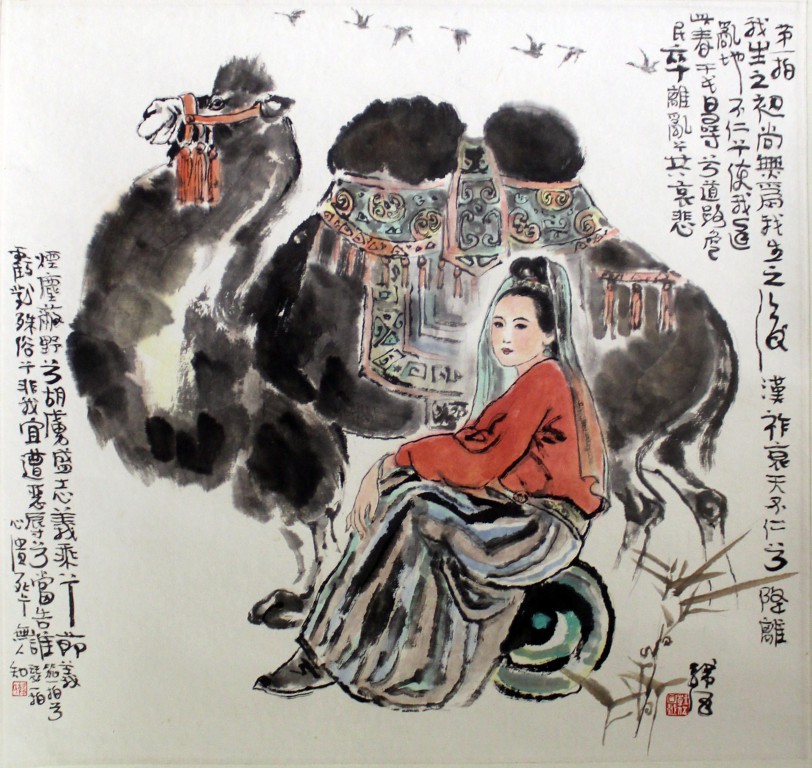 第一拍
我生之初尚無爲我生之後漢祚衰天不仁兮降離
亂地不仁兮使我逢
此春干戈日尋兮道路危
民卒離亂兮共哀悲
煙塵蔽野兮胡虜盛志義乖兮節義
虧對殊俗兮非我宜遭惡辱兮當告誰笳一拍兮
琴一拍
心潰死兮無人知
韓伍